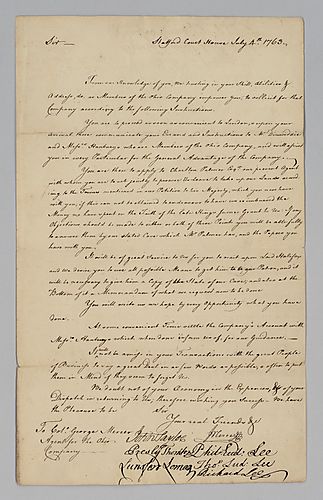 Sir — Stafford Court House July 4th. 1763.
From our Knowledge of you, We trusting in your Skill, Abilities &
Address, do, as Members of the Ohio Company impower you, to sollicit for that
Company according to the following Instructions.
You are to proceed on with convenience to London, & upon your
arrival there communicate your Errand and Instructions to Mr. Dinwiddie
and Messrs. Hanburys who are Members of the Ohio Company, and will assist
you in every Particular for the General Advantage of the Company. —
You are then to apply to Charlton Palmer Esqr. our present Agent
with whom you are to act jointly to procure Us leave to take up our Lands accord-
ing to the Terms mentioned in our Petition to his Majesty, which you now have
with you; if this can not be obtained to endeavour to have us reimbursed the
Money we have spent on the Faith of the late Kings former Grant to Us. If any
Objections should be made to either or both of these Points you will be able fully
to answer them by our stated Case, which Mr. Palmer has, and the Papers you
have with you.
It will be of great Service to Us for you to wait upon Lord Halifax
and we desire you to use all possible Means to get him to be our Patron, and it
will be necessary to give him a Copy of the State of our Case, and also at the
Bottom of it a Memorandum of what we request now to be done.
You will write us we hope by every Opportunity what you have
done.
At some convenient Time settle the Company's Account with
Messrs. Hanburys which when done inform us of, for our Guidance. —
It must be wrong in your Transactions with the great People
of Business to say a great deal in as few Words as possible, & often to put
them in Mind of they seem to forget Us.
We doubt not of your Oeconomy in the Expences, & of your
Dispatch in returning to Us, therefore wishing you Success. We have
the Pleasure to be Sir
Your real Friends &c
To Colo. George Mercer
Agent for the Ohio
Company —
John Tayloe J Mercer
Presly Thornton Phil. Lud. Lee
Lunsford Lomax Tho. Lud. Lee
Richard Lee